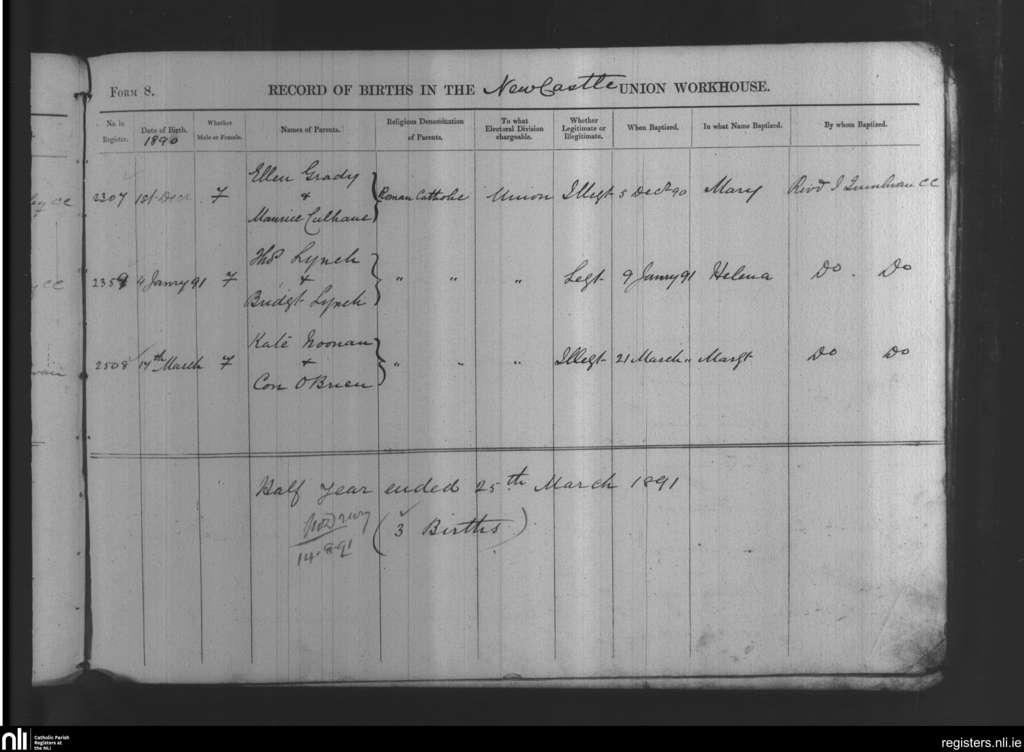 Form 8.
RECORD OF BIRTHS IN THE NewCastle UNION WORKHOUSE.
No. in Register.
Date of Birth. 1890
Whether Male or Female.
Names of Parents.
Religious Denomination of Parents.
To what Electoral Division chargeable.
Whether Legitimate or Illegitimate.
When Baptized.
In what Name Baptized.
By whom Baptized.
Ellen Grady
2307 1st Decr F & Roman Catholic Union Illegt 5 Decr 90 Mary Revd J CC
Maurice Culhane
Thos Lynch
2359 4 Janry 91 F & " " " Legt 9 Janry 91 Helena Do . Do
Bridgt Lynch
Kate Noonan
2508 17th March F & " " " Illegt 21 March " Margt Do Do
Con O'Brien
Half year ended 25th March 1891
(3 Births)
14.8.91
CC
CC
nli
Catholic Parish
Registers at
the NLI
registers.nli.ie